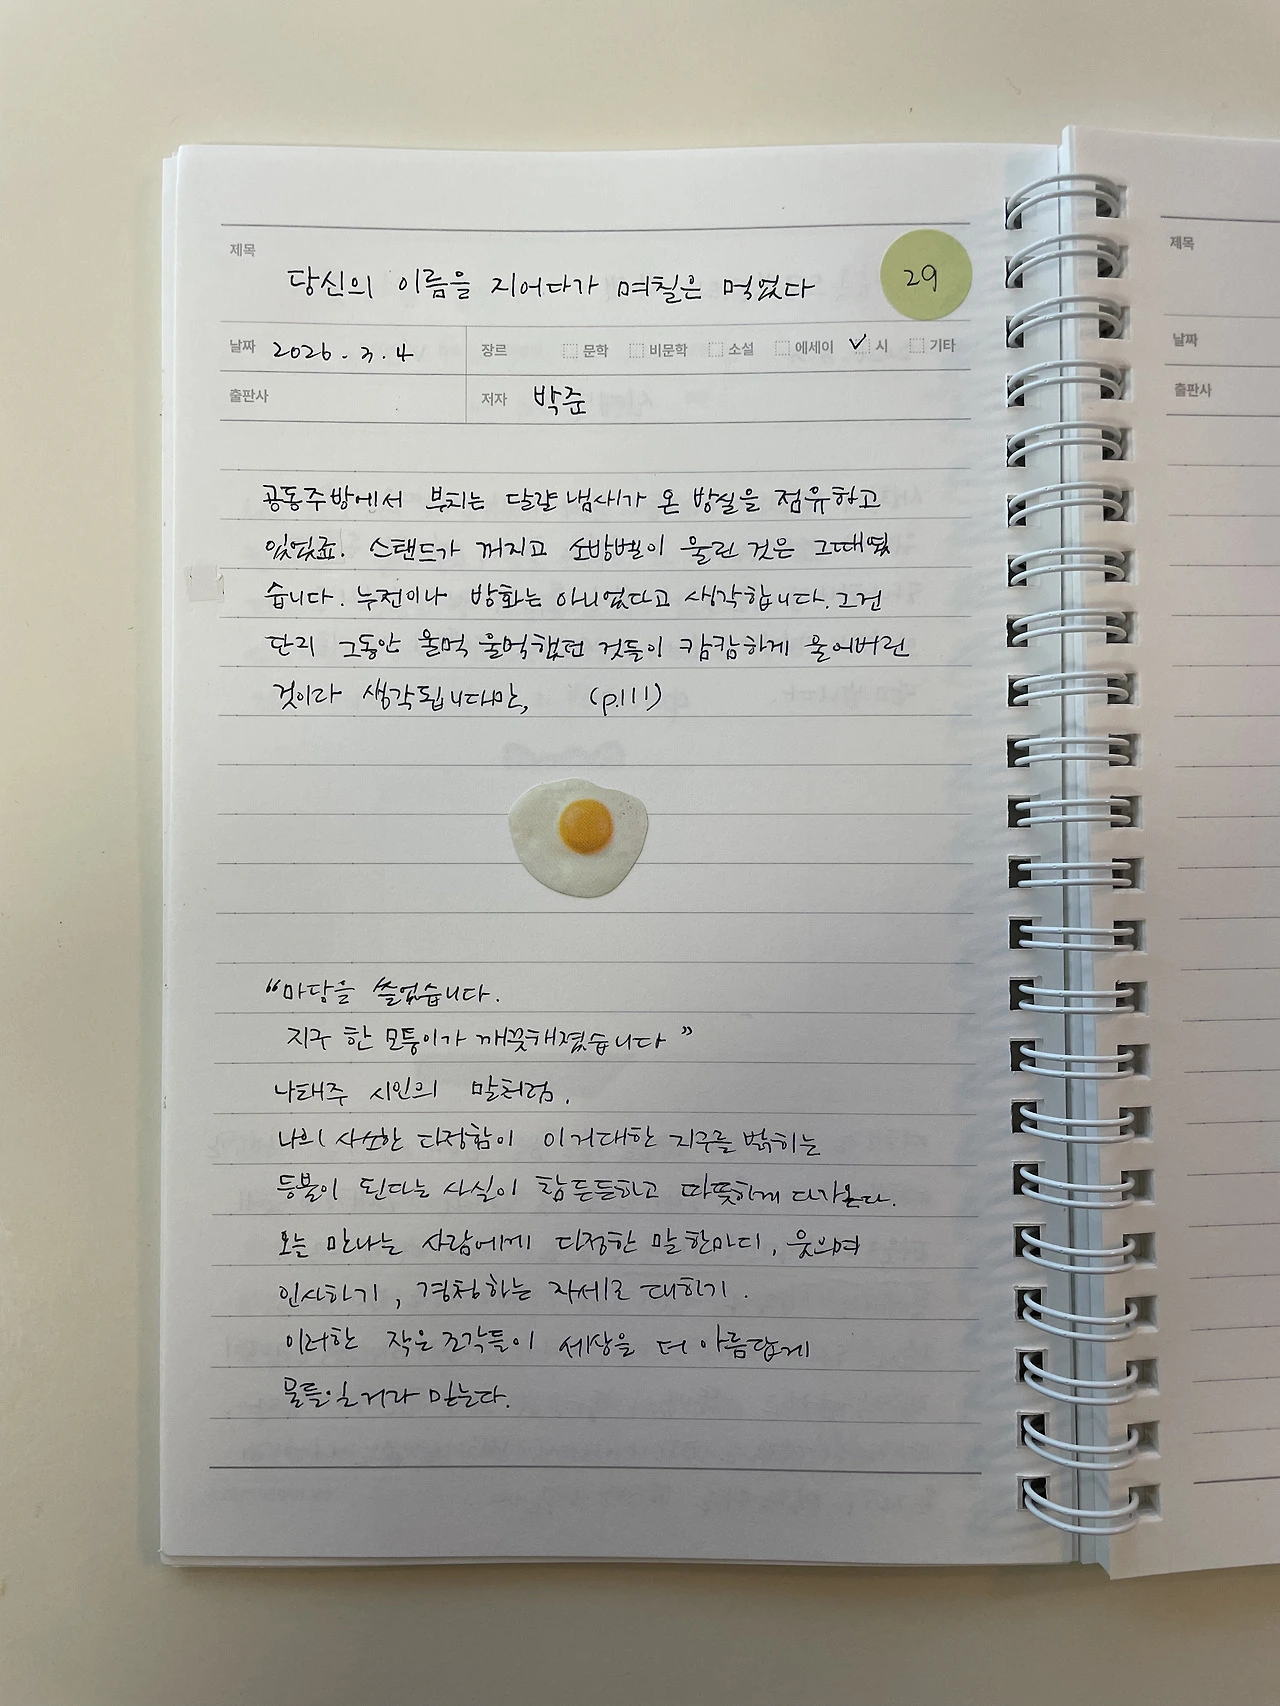 제목
당신의 이름을 지어다가 며칠은 먹었다
29
날짜 2026. 3. 4
장르 문학 비문학 소설 에세이 ✓ 시 기타
출판사
저자 박준
공동주방에서 부치는 달걀 냄새가 온 방실을 점유하고
있었죠. 스탠드가 꺼지고 소방벨이 울린 것은 그때였
습니다. 누전이나 방화는 아니었다고 생각합니다. 그건
단지 그동안 울먹 울먹했던 것들이 캄캄하게 울어버린
것이라 생각됩니다만, (p.111)
“마당을 쓸었습니다.
지구 한 모퉁이가 깨끗해졌습니다”
나태주 시인의 말처럼.
나의 사소한 다정함이 이 거대한 지구를 밝히는
등불이 된다는 사실이 참 든든하고 따뜻하게 다가온다.
오늘 만나는 사람에게 다정한 말 한마디, 웃으며
인사하기, 경청하는 자세로 대하기.
이러한 작은 조각들이 세상을 더 아름답게
물들일 거라 믿는다.
제목
날짜
출판사